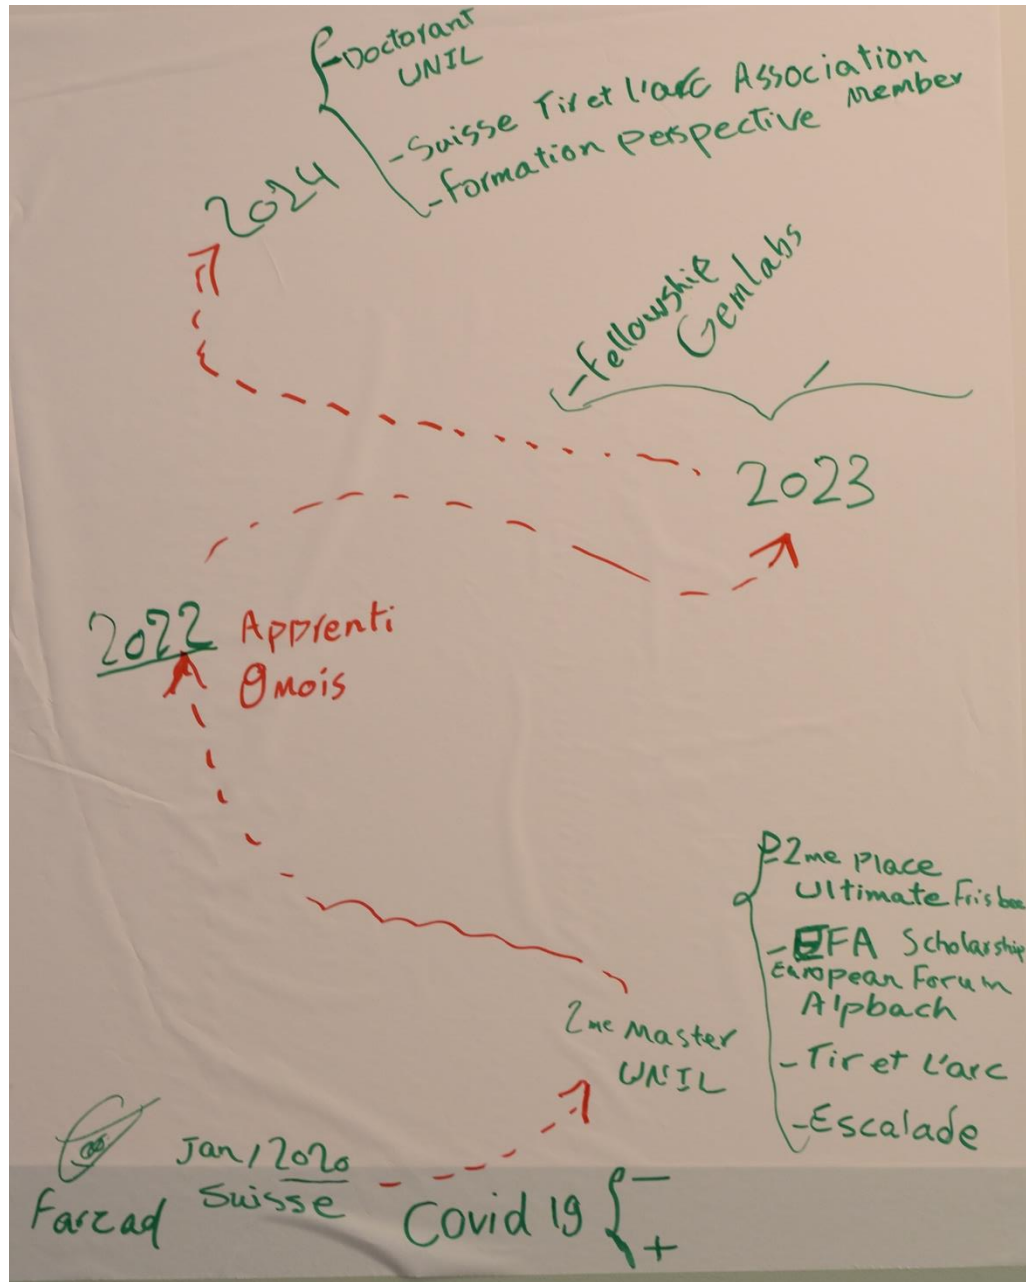 -Doctorant
UNIL
-Suisse Tir et l'arc Association
-Formation perspective member
2024
-Fellowship
Gemlabs
2023
2022 Apprenti
8 mois
2me place
Ultimate Frisbee
-EFA Scholarship
European Forum
Alpbach
-Tir et l'arc
-Escalade
2me Master
UNIL
Jan/2020
Suisse
Farzad
Covid 19 { -
+